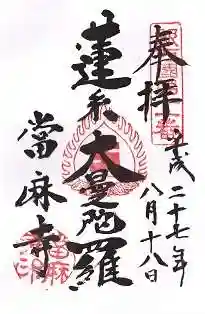 奉拝
平成二十七年
八月十八日
蓮糸大曼陀羅
當麻寺